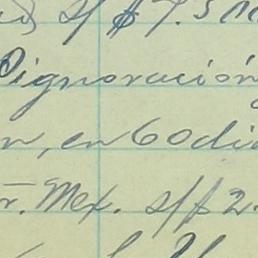 s/ $ 7.5
Pignoración
n, en 60 dia
r. Mex. s/$ 2.